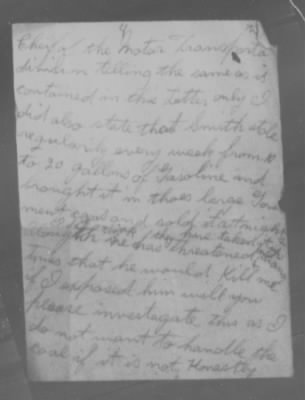 4
Cheif of the Motor Transporta
division telling the same as is
contained in this letter only I
did also state that Smith stole
regularly every week from 10
to 20 gallons of Gasoline and
brought it in those large
ment cans and sold it at night
he has threatened
times that he would Kill me
if I exposed him will you
please investagate this as I
do not want to handle the
coal if it is not Honestly